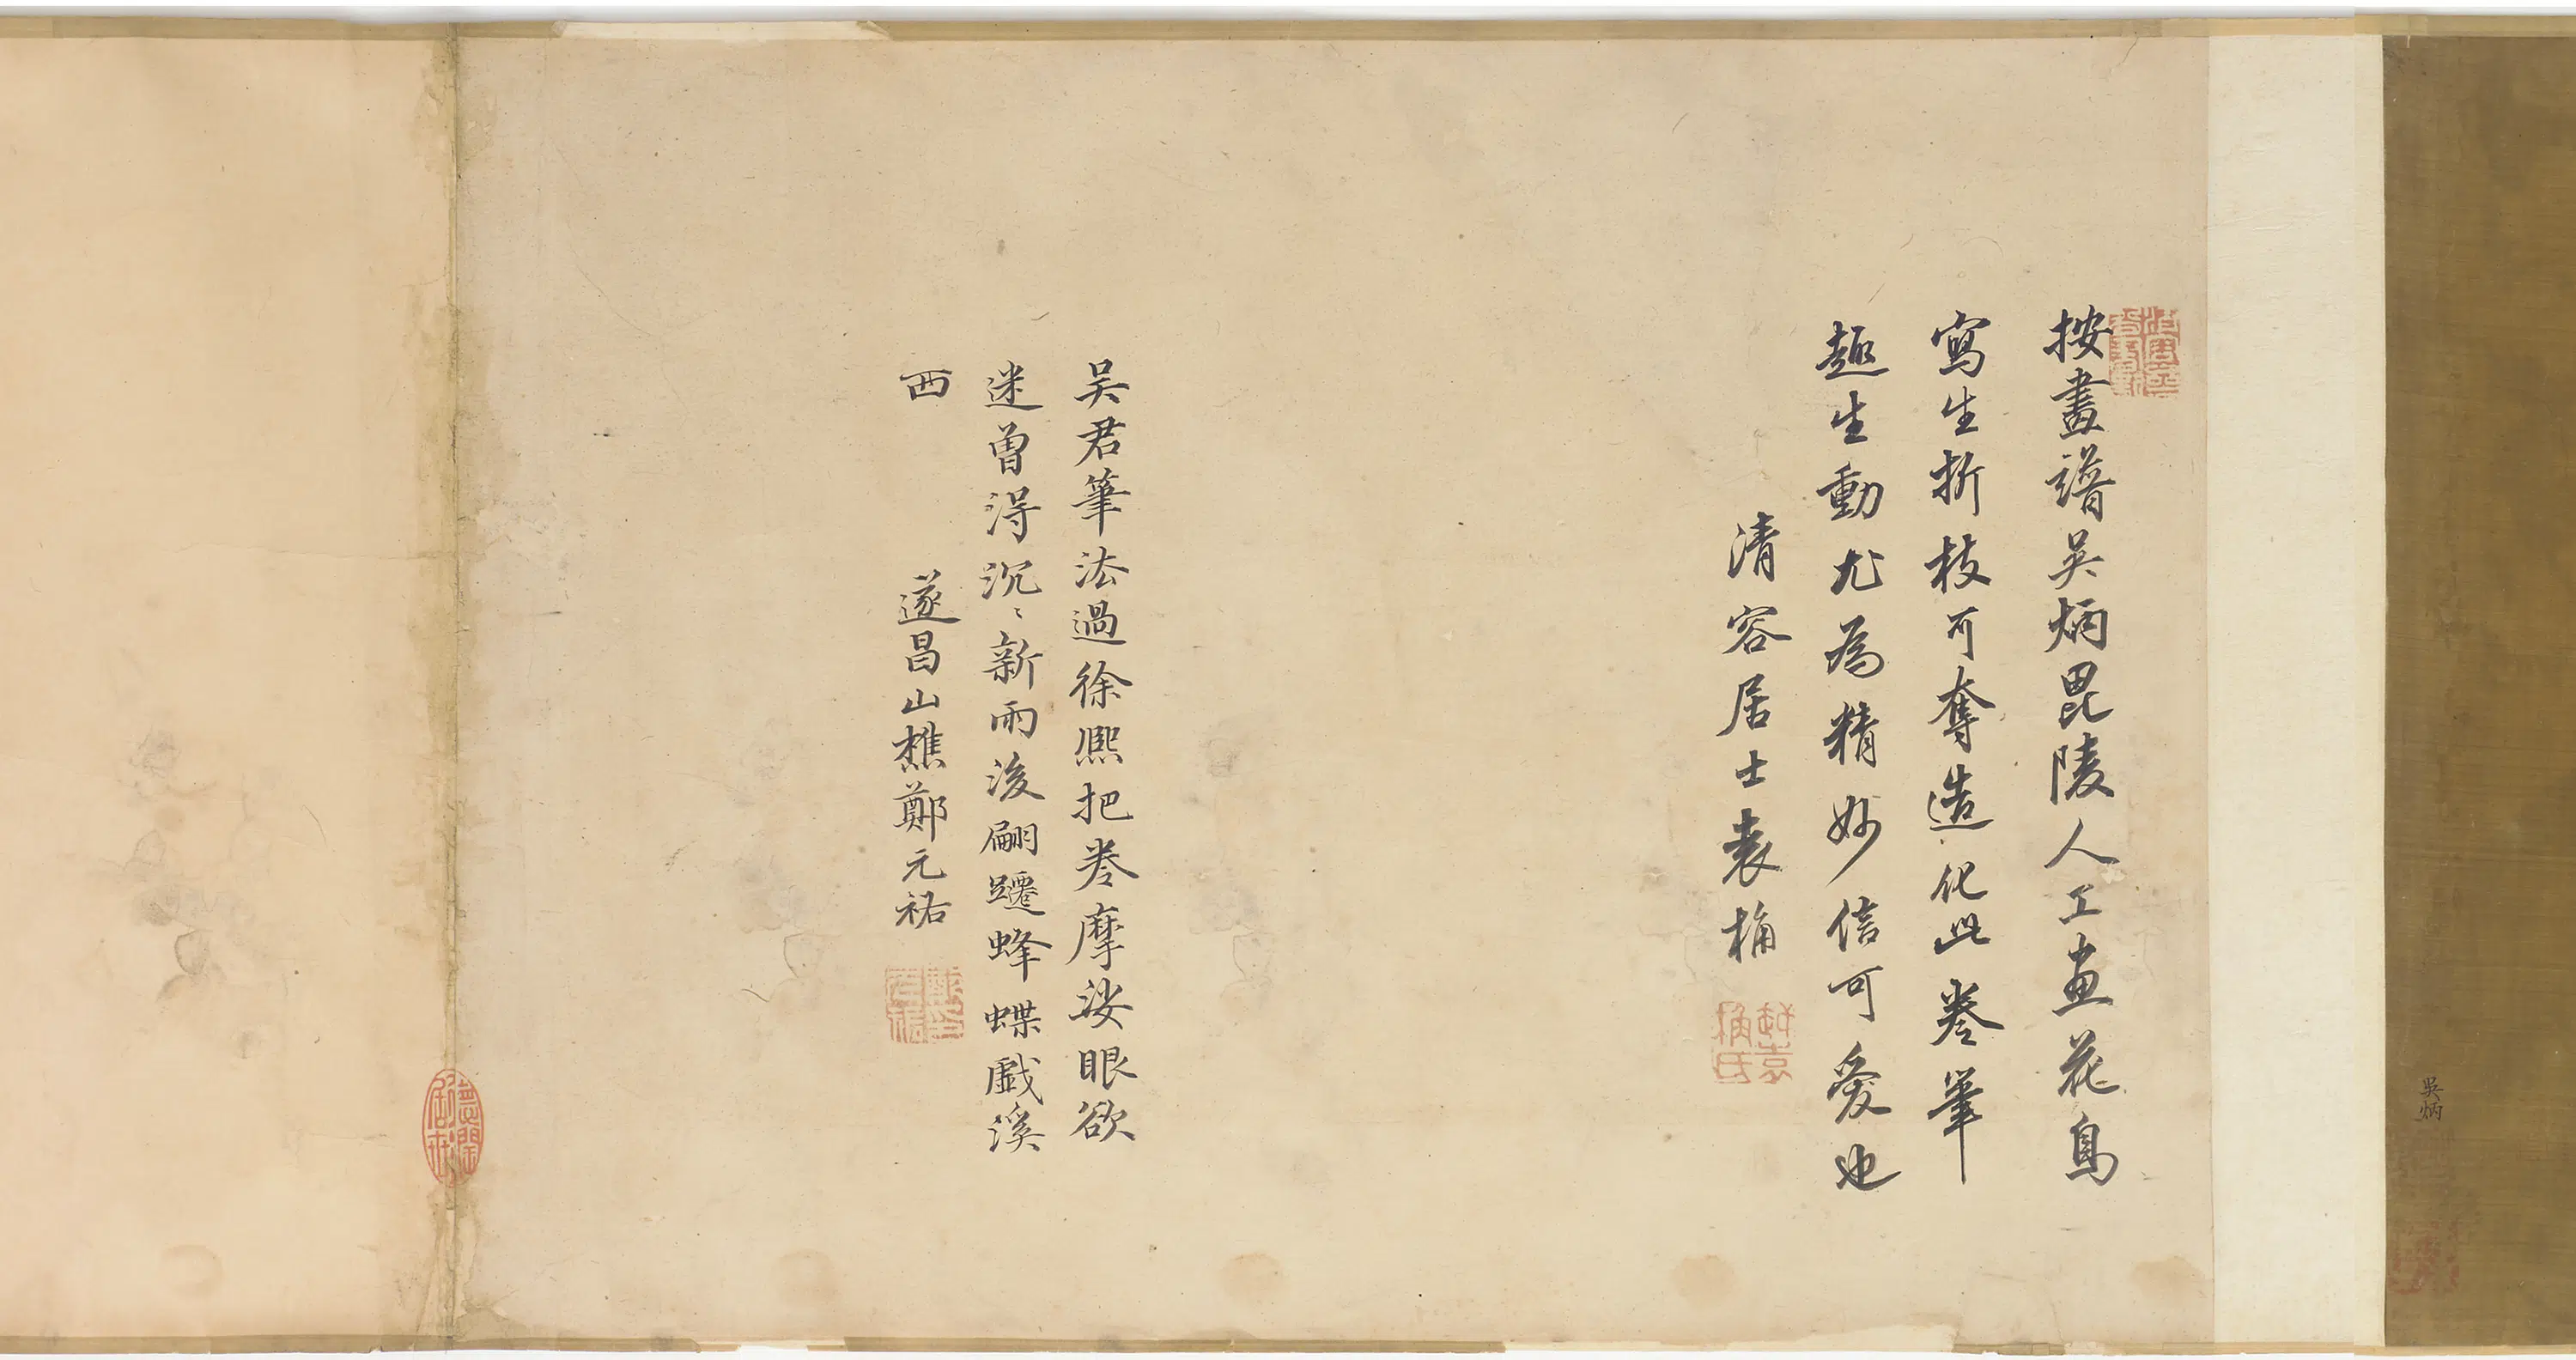 吳炳
按畫譜吳炳毘陵人工畫花鳥
寫生折枝可奪造化此卷筆
趣生動尤為精妙信可愛也
清容居士袁桷
吳君筆法過徐熙把卷摩娑眼欲
迷曾得沉〻新雨後翩躚蜂蝶戯溪
西
遂昌山樵鄭元祐